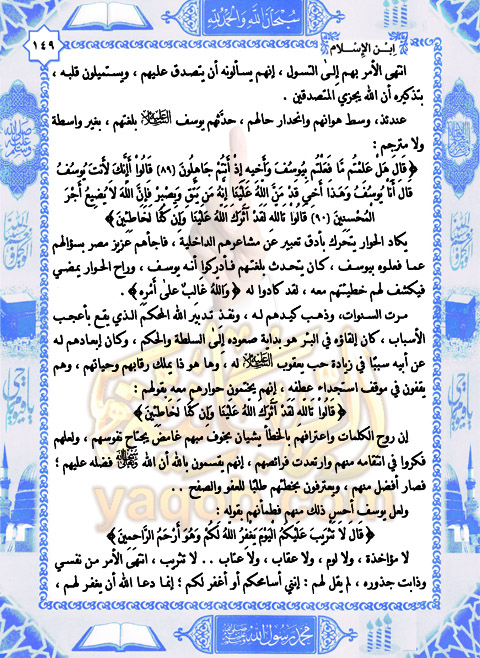 سبحان الله والحمد لله
ابن الإسلام
١٤٩
انتهى الأمر بهم إلى التسول ، إنهم يسألونه أن يتصدق عليهم ، ويستميلون قلبه ،
بتذكيره أن الله يجزي المتصدقين .
عندئذ، وسط هوانهم وانحدار حالهم ، حدثهم يوسف عليه السلام بلغتهم ، بغير واسطة
ولا مترجم :
﴿ قَالَ هَلْ عَلِمْتُم مَّا فَعَلْتُم بِيُوسُفَ وَأَخِيهِ إِذْ أَنتُمْ جَاهِلُونَ (٨٩) قَالُوا أَئِنَّكَ لَأَنتَ يُوسُفُ
قَالَ أَنَا يُوسُفُ وَهَذَا أَخِي قَدْ مَنَّ اللَّهُ عَلَيْنَا إِنَّهُ مَن يَتَّقِ وَيَصْبِرْ فَإِنَّ اللَّهَ لَا يُضِيعُ أَجْرَ
الْمُحْسِنِينَ (٩٠) قَالُوا تَاللَّهِ لَقَدْ آثَرَكَ اللَّهُ عَلَيْنَا وَإِن كُنَّا لَخَاطِئِينَ ﴾
يكاد الحوار يتحرك بأدق تعبير عن مشاعرهم الداخلية ، فاجأهم عزيز مصر بسؤالهم
عما فعلوه بيوسف ، كان يتحدث بلغتهم فأدركوا أنه يوسف ، وراح الحوار يمضي
فيكشف لهم خطيئتهم معه ، لقد كادوا له ﴿ وَاللَّهُ غَالِبٌ عَلَى أَمْرِهِ ﴾ .
مرت السنوات، وذهب كيدهم له ، ونفذ تدبير الله المحكم الذي يقع بأعجب
الأسباب ، كان إلقاؤه في البئر هو بداية صعوده إلى السلطة والحكم ، وكان إبعادهم له
عن أبيه سببًا في زيادة حب يعقوب عليه السلام له ، وها هو ذا يملك رقابهم وحياتهم ، وهم
يقفون في موقف استجداء عطفه ، إنهم يختمون حوارهم معه بقولهم :
﴿ قَالُوا تَاللَّهِ لَقَدْ آثَرَكَ اللَّهُ عَلَيْنَا وَإِن كُنَّا لَخَاطِئِينَ ﴾
إن روح الكلمات واعترافهم بالخطأ يشيان بخوف مبهم غامض يجتاح نفوسهم ، ولعلهم
فكروا في انتقامه منهم وارتعدت فرائصهم ، إنهم يقسمون بالله أن الله ﷺ فضله عليهم ؛
فصار أفضل منهم ، ويعترفون بخطئهم طلبًا للعفو والصفح . .
ولعل يوسف أحس ذلك منهم فطمأنهم بقوله :
﴿ قَالَ لَا تَثْرِيبَ عَلَيْكُمُ الْيَوْمَ يَغْفِرُ اللَّهُ لَكُمْ وَهُوَ أَرْحَمُ الرَّاحِمِينَ ﴾
لا مؤاخذة ، ولا لوم ، ولا عقاب ، ولا عتاب . . لا تثريب ، انتهى الأمر من نفسي
وذابت جذوره ، لم يقل لهم : إنني أسامحكم أو أغفر لكم ؛ إنما دعا الله أن يغفر لهم ،
yaqob.com
محمد رسول الله